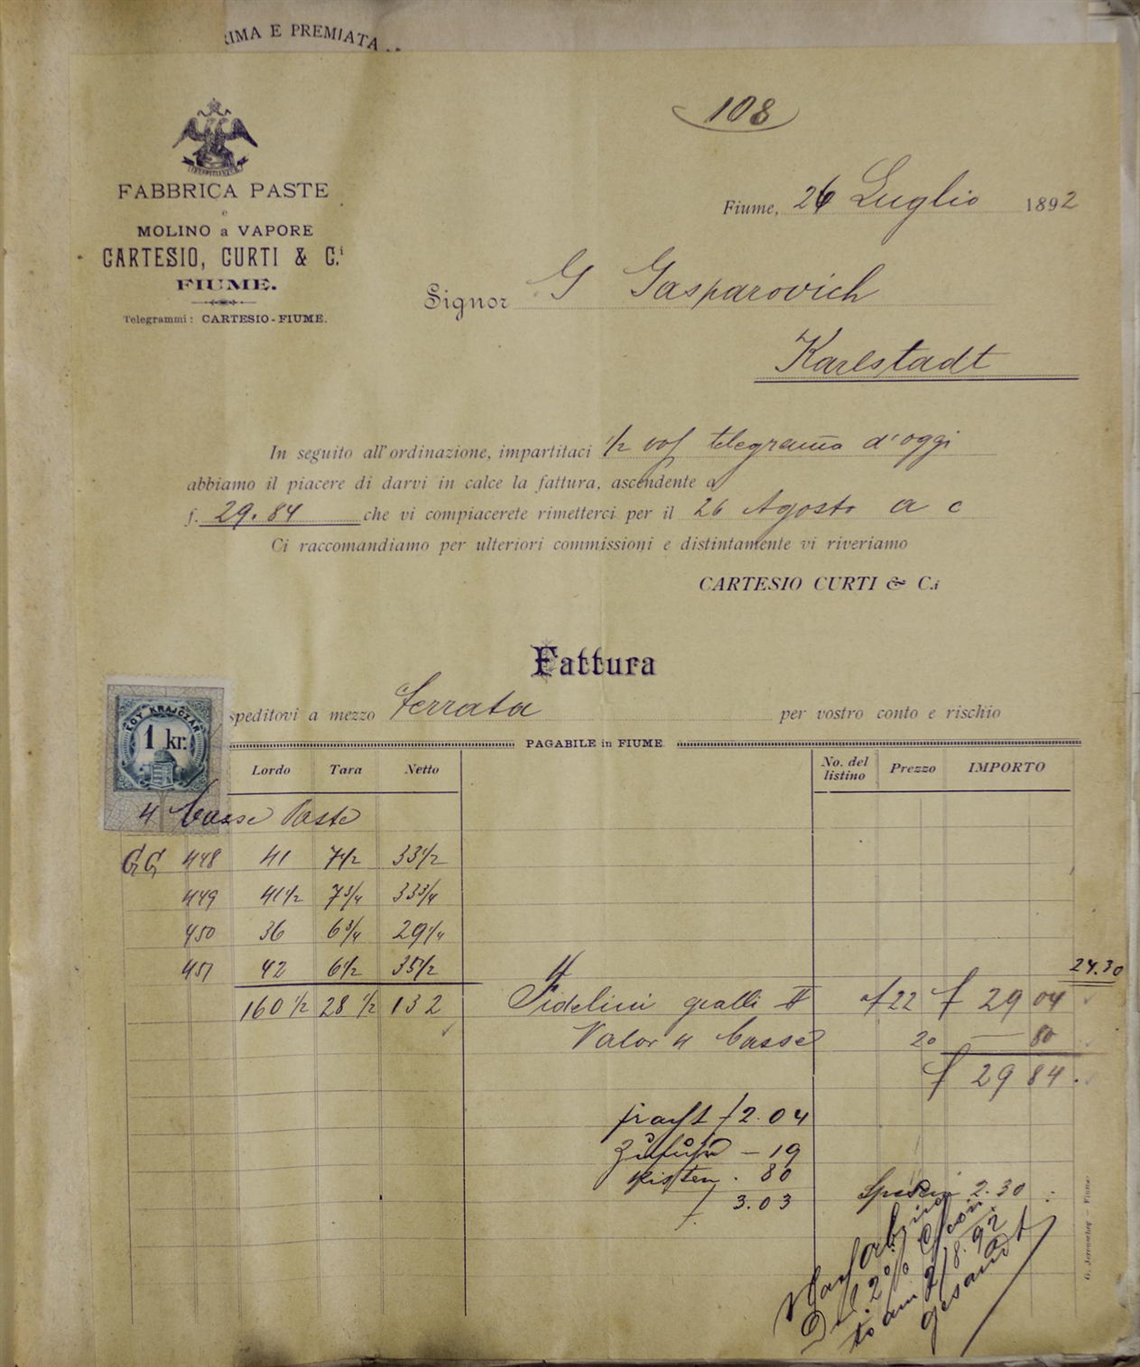 RIMA E PREMIATA
108
FABBRICA PASTE
e
MOLINO a VAPORE
CARTESIO, CURTI & C.i
FIUME.
Telegrammi: CARTESIO-FIUME.
Fiume, 26 Luglio 1892
Signor G Gasparovich
Karlstadt
In seguito all'ordinazione, impartitaci 1/2 telegramo d'oggi
abbiamo il piacere di darvi in calce la fattura, ascendente a
f. 29.84 che vi compiacerete rimetterci per il 26 Agosto a c
Ci raccomandiamo per ulteriori commissioni e distintamente vi riveriamo
CARTESIO CURTI & C.i
Fattura
EGY KRAJCZÁR
1 kr.
speditovi a mezzo ferrata per vostro conto e rischio
PAGABILE in FIUME
Lordo Tara Netto No. del listino Prezzo IMPORTO
4 Casse Paste
GG 448 41 7 1/2 33 1/2
449 41 1/2 7 3/4 33 3/4
450 36 6 3/4 29 1/4
451 42 6 1/2 35 1/2
24.30
160 1/2 28 1/2 132 Fidelini gialli II f 22 f 29 04
Valor 4 Casse 20 — 80
f 29 84.
fracht f 2.04
Zufuhr — 19
Kisten . 80
f 3.03
Spesen 2.30
2%
am 2/8.92
gesandt